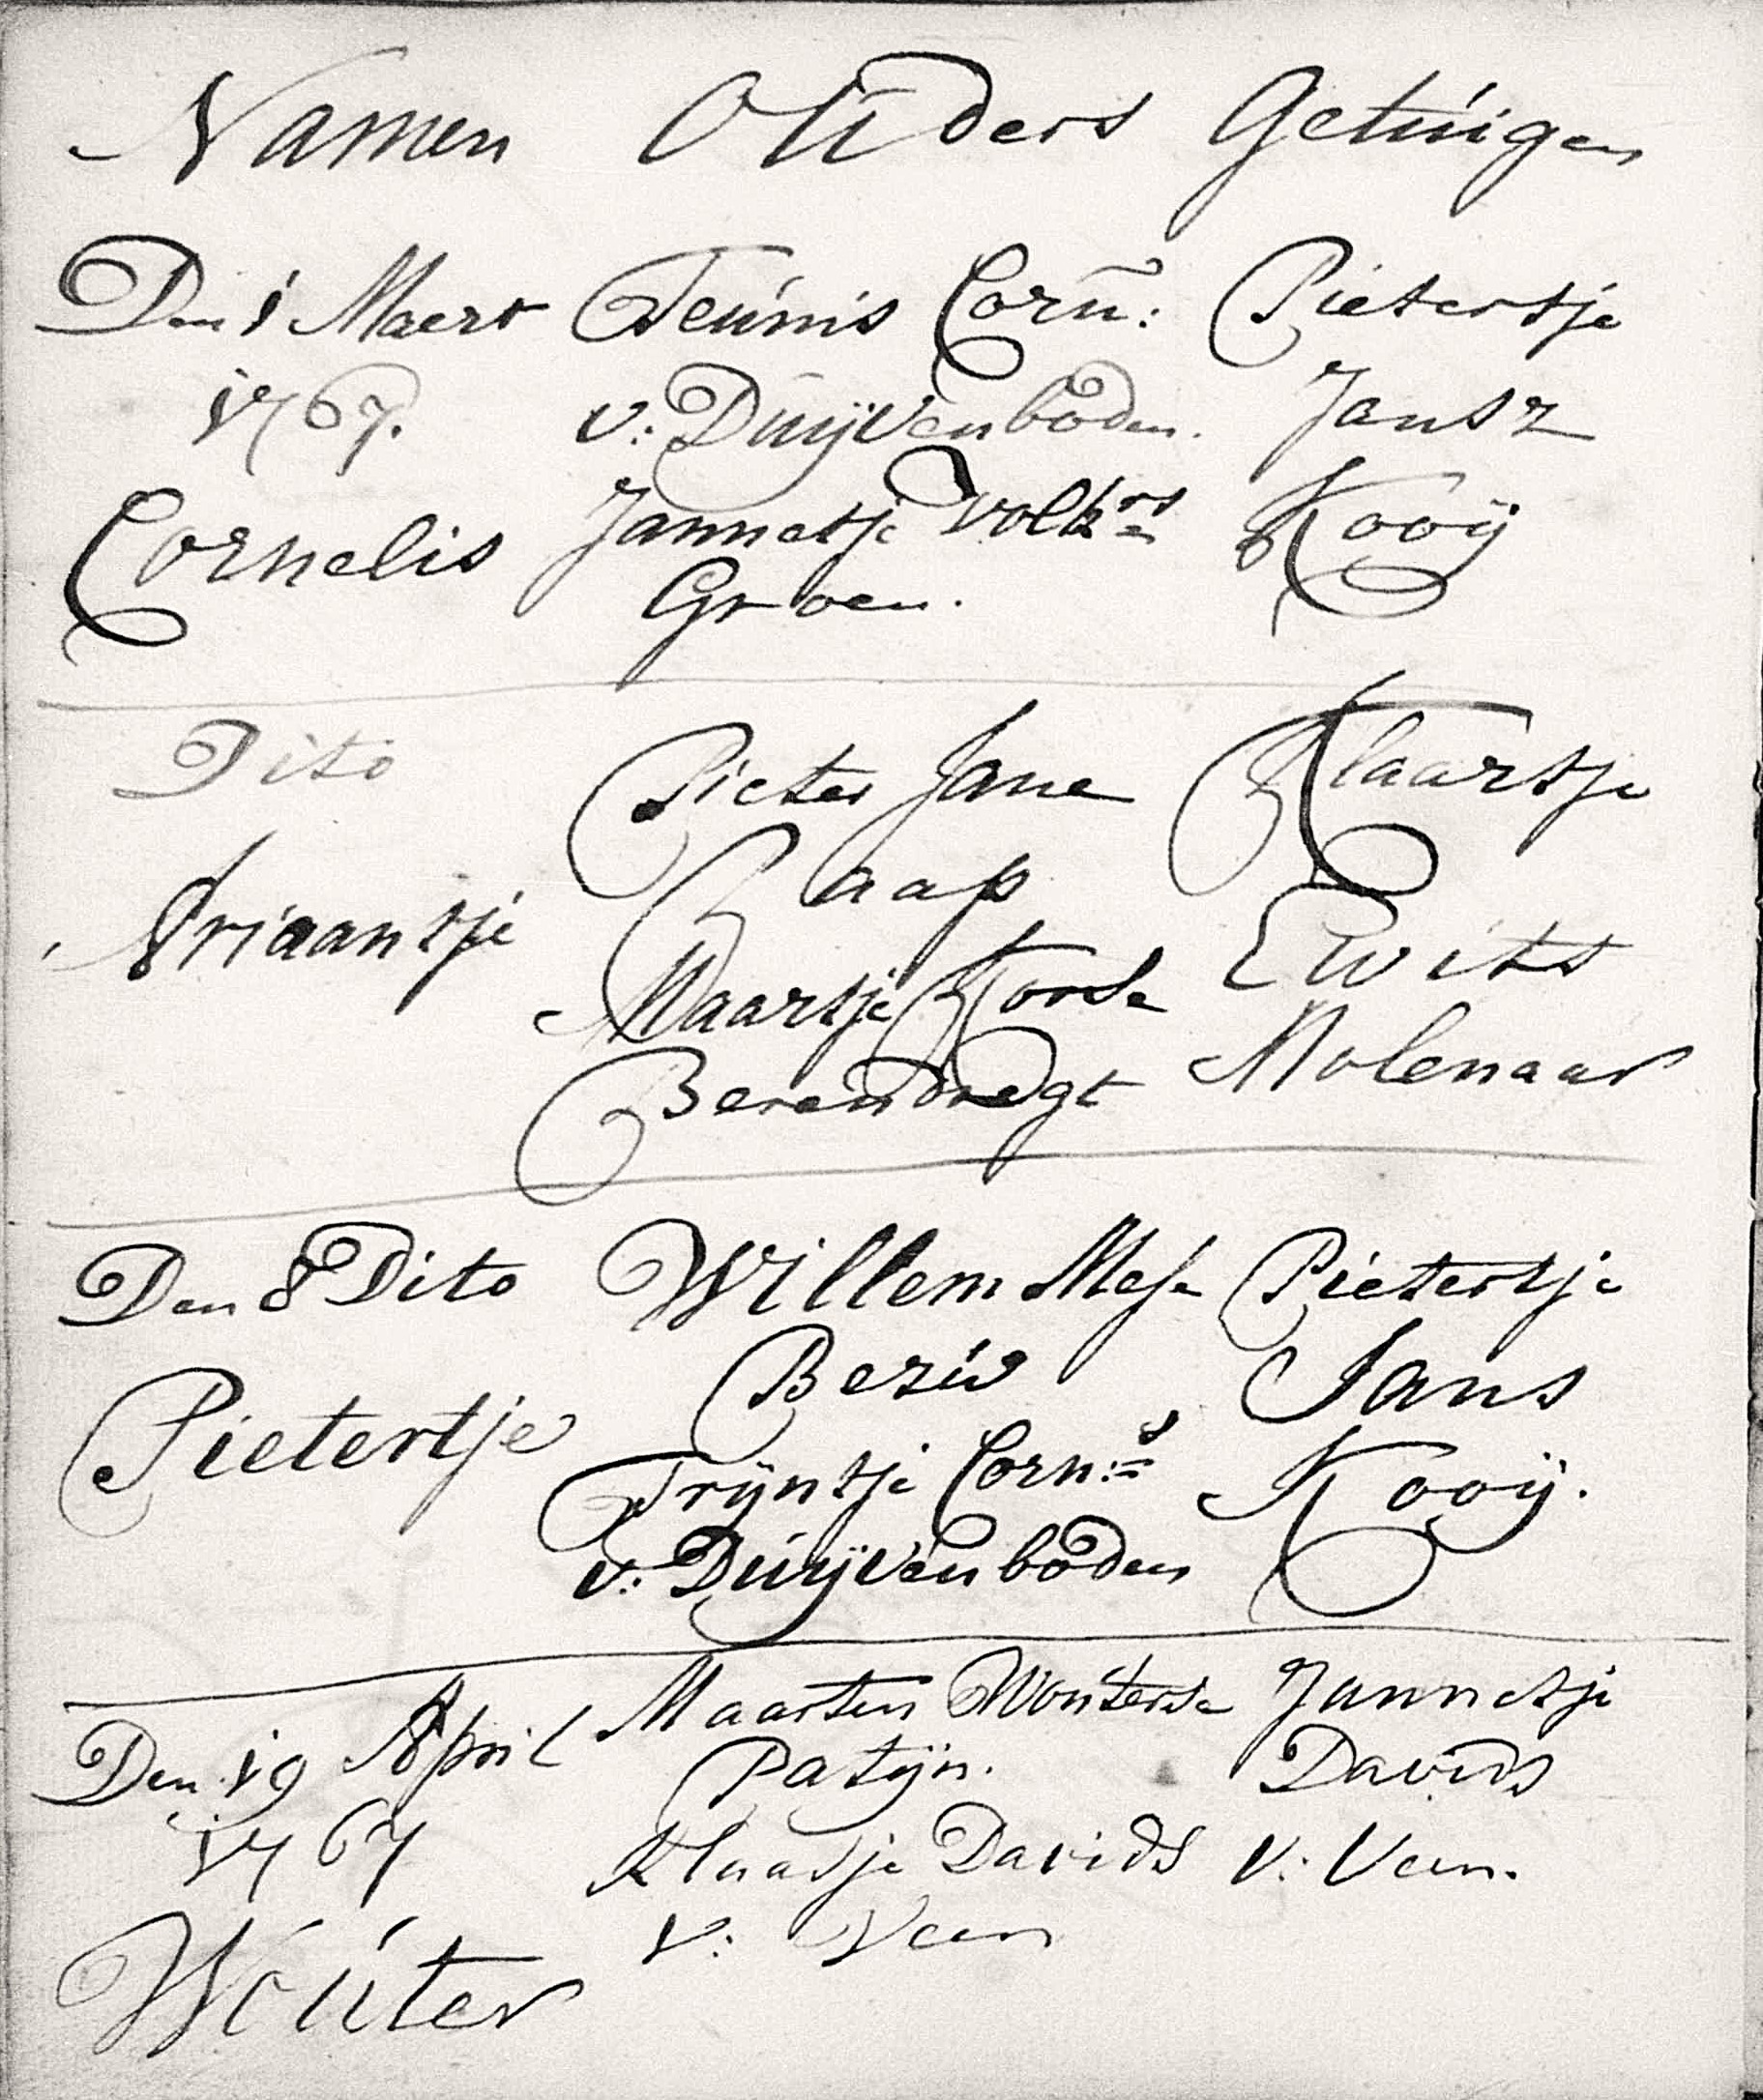 Namen Ouders Getuigen
Den 1 Maert Teunis Corn: Pietertje
1767. v: Duijvenboden. Jansz
Cornelis Jannetje Volk:rs Kooij
Groen.
Dito Pieter Janse Klaartje
Raap
Ariaantje Maartje Korse Ewits
Berendregt Molenaar
Den 8 Dito Willem Mese Pietertje
Pietertje Jans
Trijntje Corn:s Kooij.
v: Duijvenboden
Den 19 April Maarten Wouterse Jannetje
Patijn. Davids
1767 Klaasje Davids V: Veen.
V: Veen
Wouter